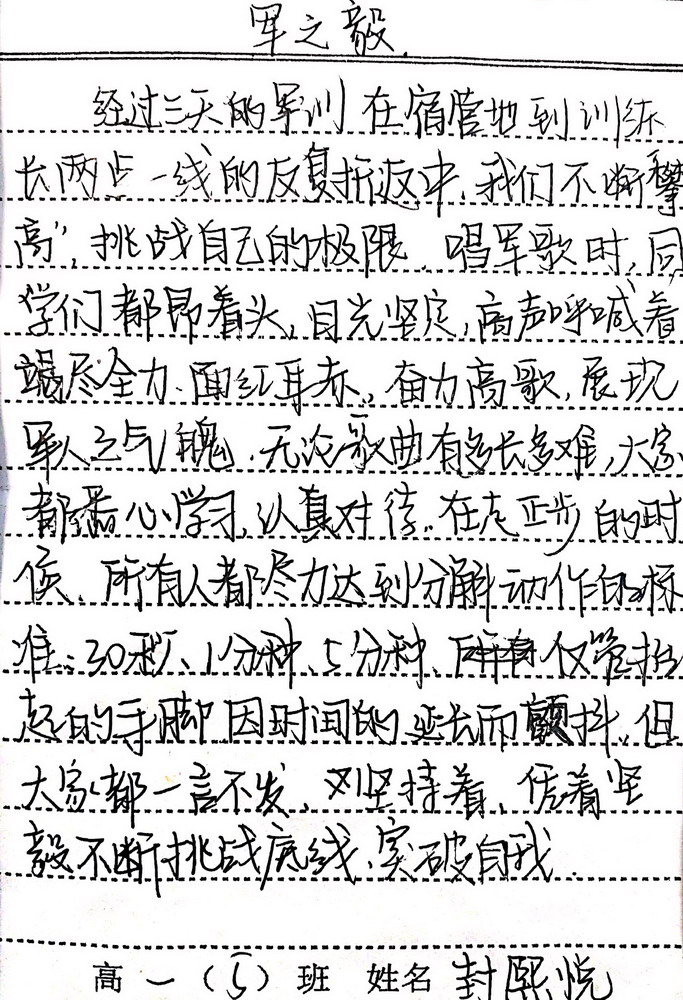 军之毅
经过三天的军训在宿营地到训练
长两点一线的反复折返中,我们不断“攀
高”,挑战自己的极限。唱军歌时,同
学们都昂着头,目光坚定,高声呼喊着
竭尽全力、面红耳赤,奋力高歌,展现
军人之气魄。无论歌曲有多长多难,大家
都悉心学习,认真对待。在走正步的时
候、所有人都尽力达到分解动作的标
准:30秒、1分种、5分种、仅管抬
起的手脚因时间的延长而颤抖,但
大家都一言不发,又坚持着,凭着坚
毅不断挑战底线,突破自我.
高一(5)班 姓名 封熙悦